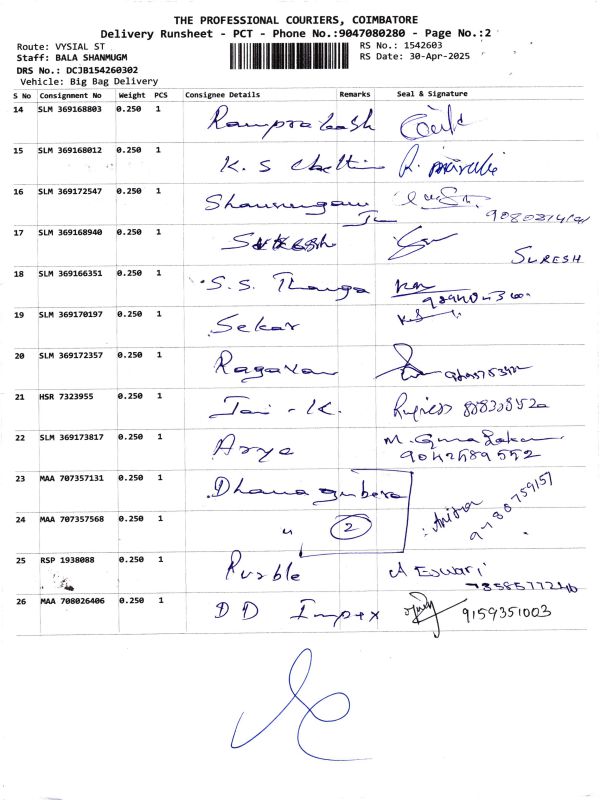 THE PROFESSIONAL COURIERS, COIMBATORE
Delivery Runsheet - PCT - Phone No.:9047080280 - Page No.:2
Route: VYSIAL ST RS No.: 1542603
Staff: BALA SHANMUGM RS Date: 30-Apr-2025
DRS No.: DCJB154260302
Vehicle: Big Bag Delivery
S No Consignment No Weight PCS Consignee Details Remarks Seal & Signature
14 SLM 369168803 0.250 1 Ramprakash
15 SLM 369168012 0.250 1 K. S
16 SLM 369172547 0.250 1
17 SLM 369168940 0.250 1 Suresh SURESH
18 SLM 369166351 0.250 1 S.S. Thanga
19 SLM 369170197 0.250 1 Sekar
20 SLM 369172357 0.250 1 Ragavan
21 HSR 7323955 0.250 1 Jai - K.
22 SLM 369173817 0.250 1 Arya M.
9042689552
23 MAA 707357131 0.250 1 Dhana
24 MAA 707357568 0.250 1 " 2
25 RSP 1938088 0.250 1 A Eswari
26 MAA 708026406 0.250 1 D D Impex 9159351003